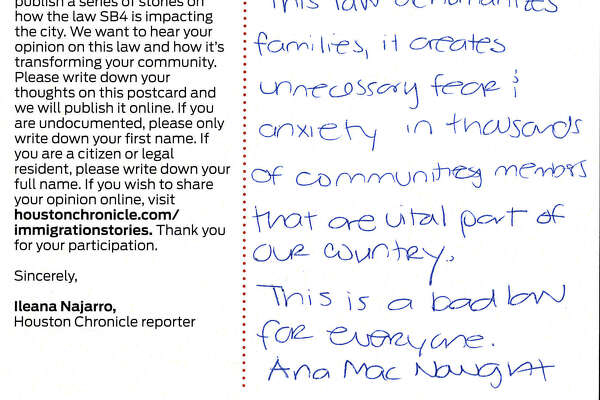 publish a series of stories on
how the law SB4 is impacting
the city. We want to hear your
opinion on this law and how it's
transforming your community.
Please write down your
thoughts on this postcard and
we will publish it online. If you
are undocumented, please only
write down your first name. If
you are a citizen or legal
resident, please write down your
full name. If you wish to share
your opinion online, visit
houstonchronicle.com/
immigrationstories. Thank you
for your participation.
Sincerely,
Ileana Najarro,
Houston Chronicle reporter
This law dehumanizes
families, it creates
unnecessary fear &
anxiety in thousands
of communitiy members
that are vital part of
our country.
This is a bad law
for everyone.
Ana Mac Naught